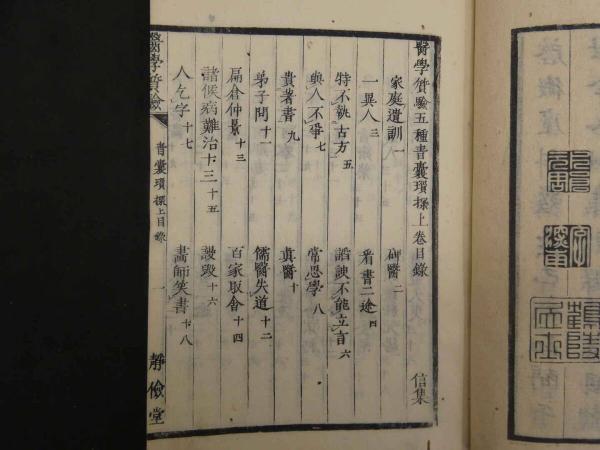 醫學質驗五種青囊瑣探上卷目錄 信集
家庭遺訓 一 碑醫 二
一異人 三 看書二途 四
特不執古方 五 諂諛不能立言 六
與人不爭 七 常思學 八
貴著書 九 真醫 十
弟子問 十一 儒醫失道 十二
扁倉仲景 十三 百家取舍 十四
諸候病難治十三 十五 謾毀 十六
人乞字 十七 醫師笑書 十八
醫學質驗 青囊瑣探上目錄 一 靜儉堂